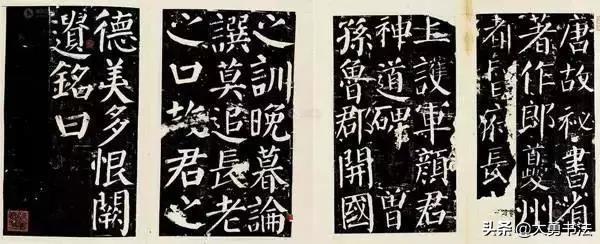 唐故祕書省
著作郎夔州
都督府長
上護軍顏君
神道碑 曾
孫魯郡開國
之訓晚暮論
譔莫追長老
之口故君之
德美多恨闕
遺銘曰
头条 @大勇书法